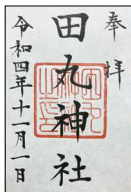 奉拝
田丸神社
令和四年十一月一日